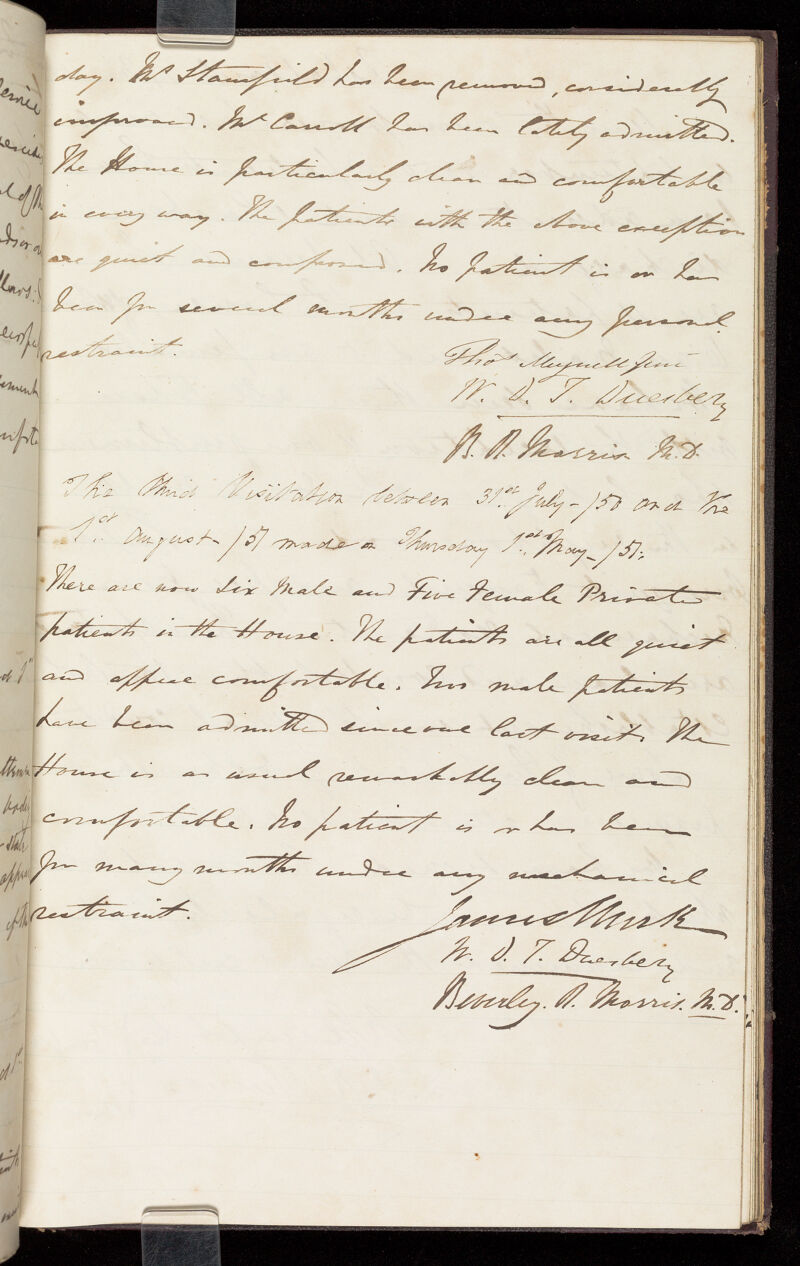 day. Mr Stansfield has been removed, considerably
improved. Mr Carroll has been lately admitted.
The House is particularly clean and comfortable
in every way. The patients with the above exception
are quiet and composed. No patient is or has
been for several months under any personal
restraint.
Thos Meynell Junr
W. D. T. Duesbery
B. R. Morris M.D.
The third Visitation between 31st July - /50 and the
1st August - /51 made on Thursday 1st May - /51.
There are now Six Male and Five Female Private
patients in the House. The patients are all quiet
and appear comfortable. Two male patients
have been admitted since our last visit. The
House is as usual remarkably clean and
comfortable. No patient is or has been
for many months under any mechanical
restraint.
James
W. D. T. Duesbery
Beverley. R. Morris. M.D.